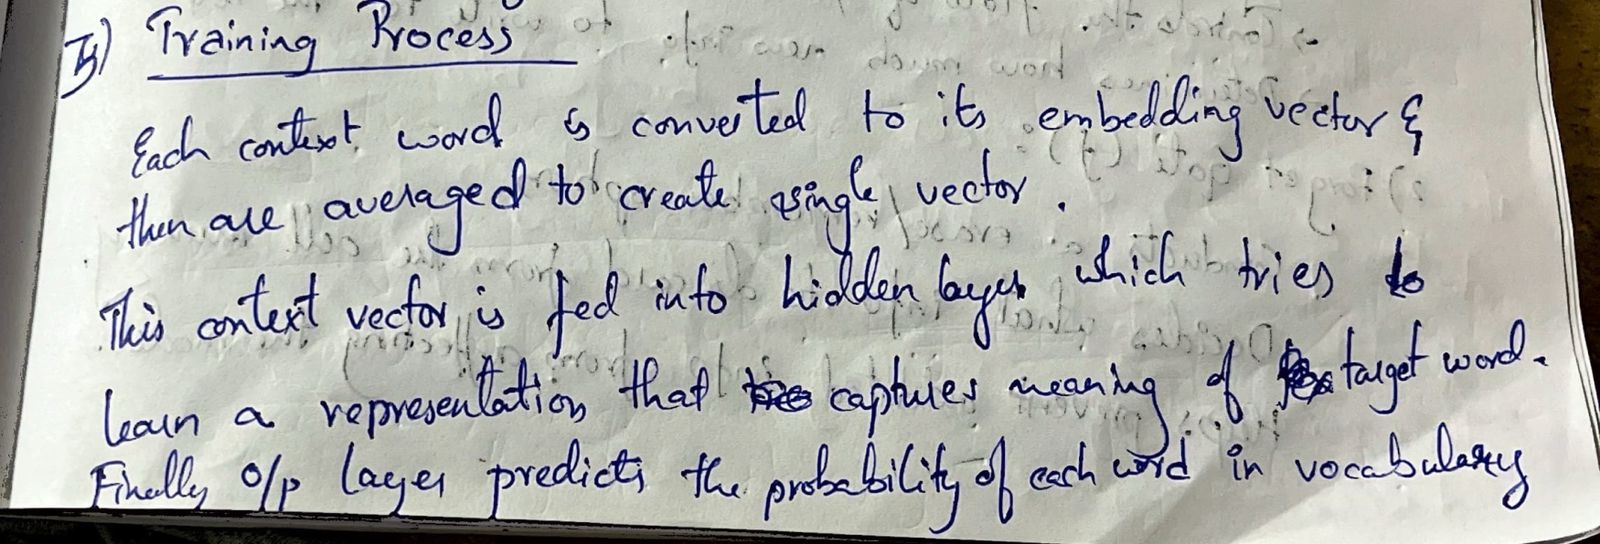 Training Process
Each context word is converted to its embedding vector &
then are averaged to create a single vector.
This context vector is fed into hidden layer which tries to
learn a representation that captures meaning of target word.
Finally o/p layer predicts the probability of each word in vocabulary